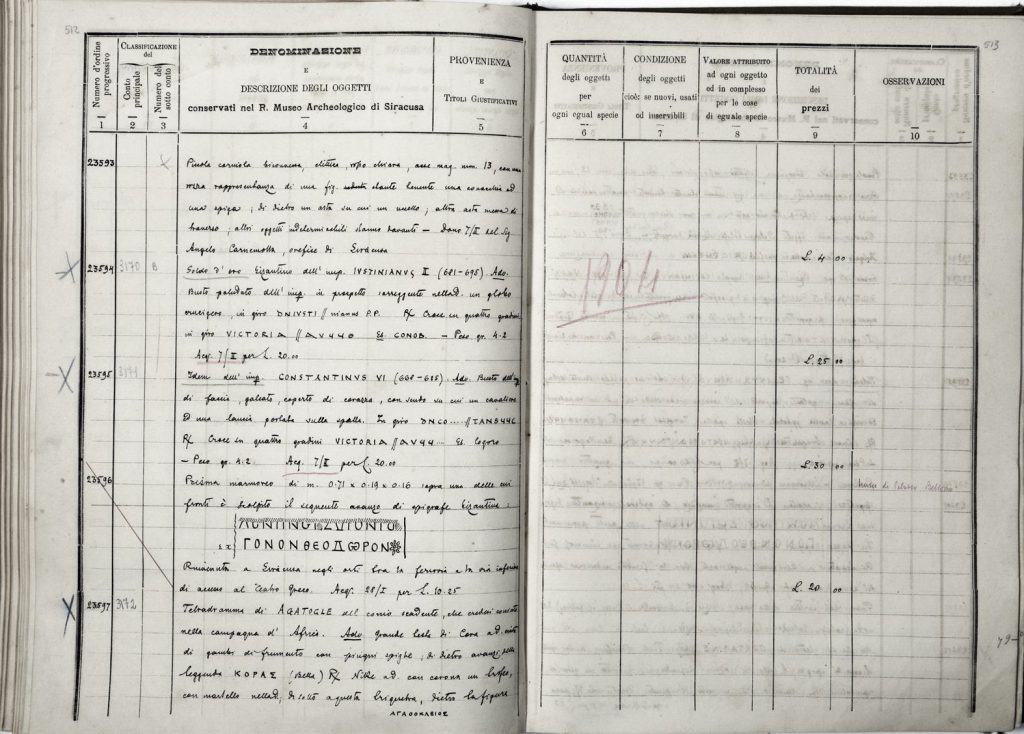 512
Numero d'ordine progressivo
CLASSIFICAZIONE del
Conto principale
Numero del sotto conto
DENOMINAZIONE
E
DESCRIZIONE DEGLI OGGETTI
conservati nel R. Museo Archeologico di Siracusa
PROVENIENZA
E
TITOLI GIUSTIFICATIVI
1 2 3 4 5
23593 Piccola corniola biconvessa, ellittica, rosso chiara, asse mag. mm. 13, con una
rozza rappresentanza di una fig. seduta stante tenente una cornucopia ed
una spiga; di dietro un'asta su cui un uccello; altra asta messa di
traverso; altri oggetti indeterminabili stanno davanti — Dono 7/II del Sig.
Angelo Carnemolla, orefice di Siracusa
23594 3170 B Soldo d'oro bizantino dell'imp. IVSTINIANVS II (681-695). Ado.
Busto paludato dell'imp. in prospetto sorreggente nella d. un globo
crucigero, in giro DNIVSTI // nianus P.P. R/ Croce su quattro gradini
in giro VICTORIA // AVҶҶΘ Es. CONOB. — Peso gr. 4.2
Acq. 7/II per L. 20.00
23595 3171 Idem dell'imp. CONSTANTINVS VI (668-685). Ado. Busto dell'imp.
di faccia, galeato, coperto di corazza, con scudo su cui un cavaliere
ed una lancia portata sulla spalla. In giro DNCO....// TANSҶҶC
R/ Croce su quattro gradini VICTORIA // AVҶҶ... Es. logoro
— Peso gr. 4.2. Acq. 7/II per L. 20.00
23596 Prisma marmoreo di m. 0.71 x 0.19 x 0.16 sopra una delle cui
fronti è scolpito il seguente avanzo di epigrafe bizantina:
ΓΟΝΟΝΘΕΟΔωΡΟΝ
Rinvenuta a Siracusa negli orti tra la ferrovia e la via inferiore
di accesso al Teatro Greco. Acq. 28/I per L. 10.25
23597 3172 Tetradramma di AGATOCLE del conio scadente, che credesi coniato
nella campagna d'Africa. Ado. Grande testa di Cora a d. cinta
di gambi di frumento con pingui spighe; di dietro avanzi della
leggenda ΚΟΡΑΣ (Bella) R/ Nike a d. con corona un trofeo,
con martello nella d., di sotto a questa triquetra, dietro la figura
ΑΓΑΘΟΚΛΕΙΟΣ
513
QUANTITÀ
degli oggetti
per
ogni egual specie
CONDIZIONE
degli oggetti
cioè: se nuovi, usati
od inservibili
VALORE ATTRIBUITO
ad ogni oggetto
ed in complesso
per le cose
di eguale specie
TOTALITÀ
dei
prezzi
OSSERVAZIONI
6 7 8 9 10
1904
L. 4 00
L. 25 00
L. 30 00
L. 20 00